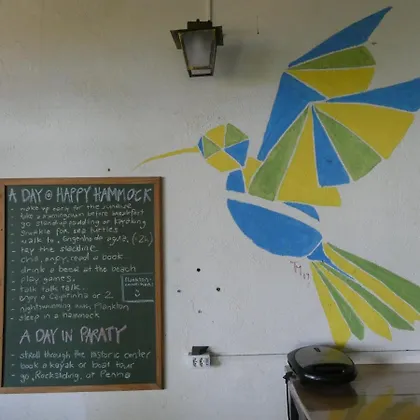 A DAY @ HAPPY HAMMOCK
- wake up early for the sunrise
- take a morning swim before breakfast
- go stand-up paddling or kayaking
- snorkle for sea turtles
- walk to engenho d'agua (2h)
- try the slackline
- chill, enjoy, read a book
- drink a beer at the beach
- play games
- talk talk talk
- enjoy a Caipirinha or 2
- nightswimming with Plankton
- sleep in a hammock
A DAY IN PARATY
- stroll through the historic center
- book a kayak or boat tour
- go Rocksliding at Penha
TM